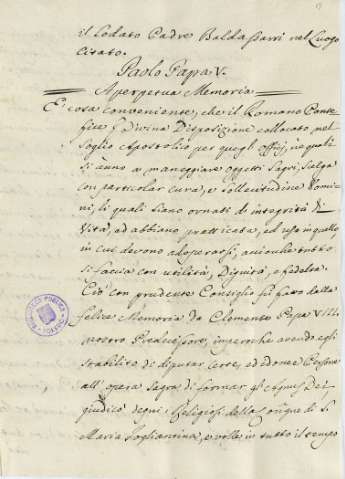 il Lodato Padre Baldassarri nel Luogo
citato.
Paolo Papa V.
A perpetua Memoria
E' cosa conveniente, che il Romano Ponte
fice p Divina Disposizione collocato nel
Soglio Apostolico, per quegl' Offizj, ne quali
si anno a maneggiare oggetti Sagri, scelga
con particolar cura, e sollecitudine Uomi
ni, li quali siano ornati di integrità di
Vita, ed abbiano pratticata, ed uso in quello,
in cui devono adoperarsi, acciochè tutto
si faccia con utilità, Dignità, e fedeltà.
Ciò con prudente Consiglio fu fatto dalla
felice Memoria di Clemente Papa VIII.
nostro Predecessore, imperochè avendo egli
stabilito di deputar certe, ed idonee Persone
all' opera sagra di formar gl' Agnus Dei
giudicò degni i Religiosi della di S.
Maria Fogliantina, e volle in tutto il tempo